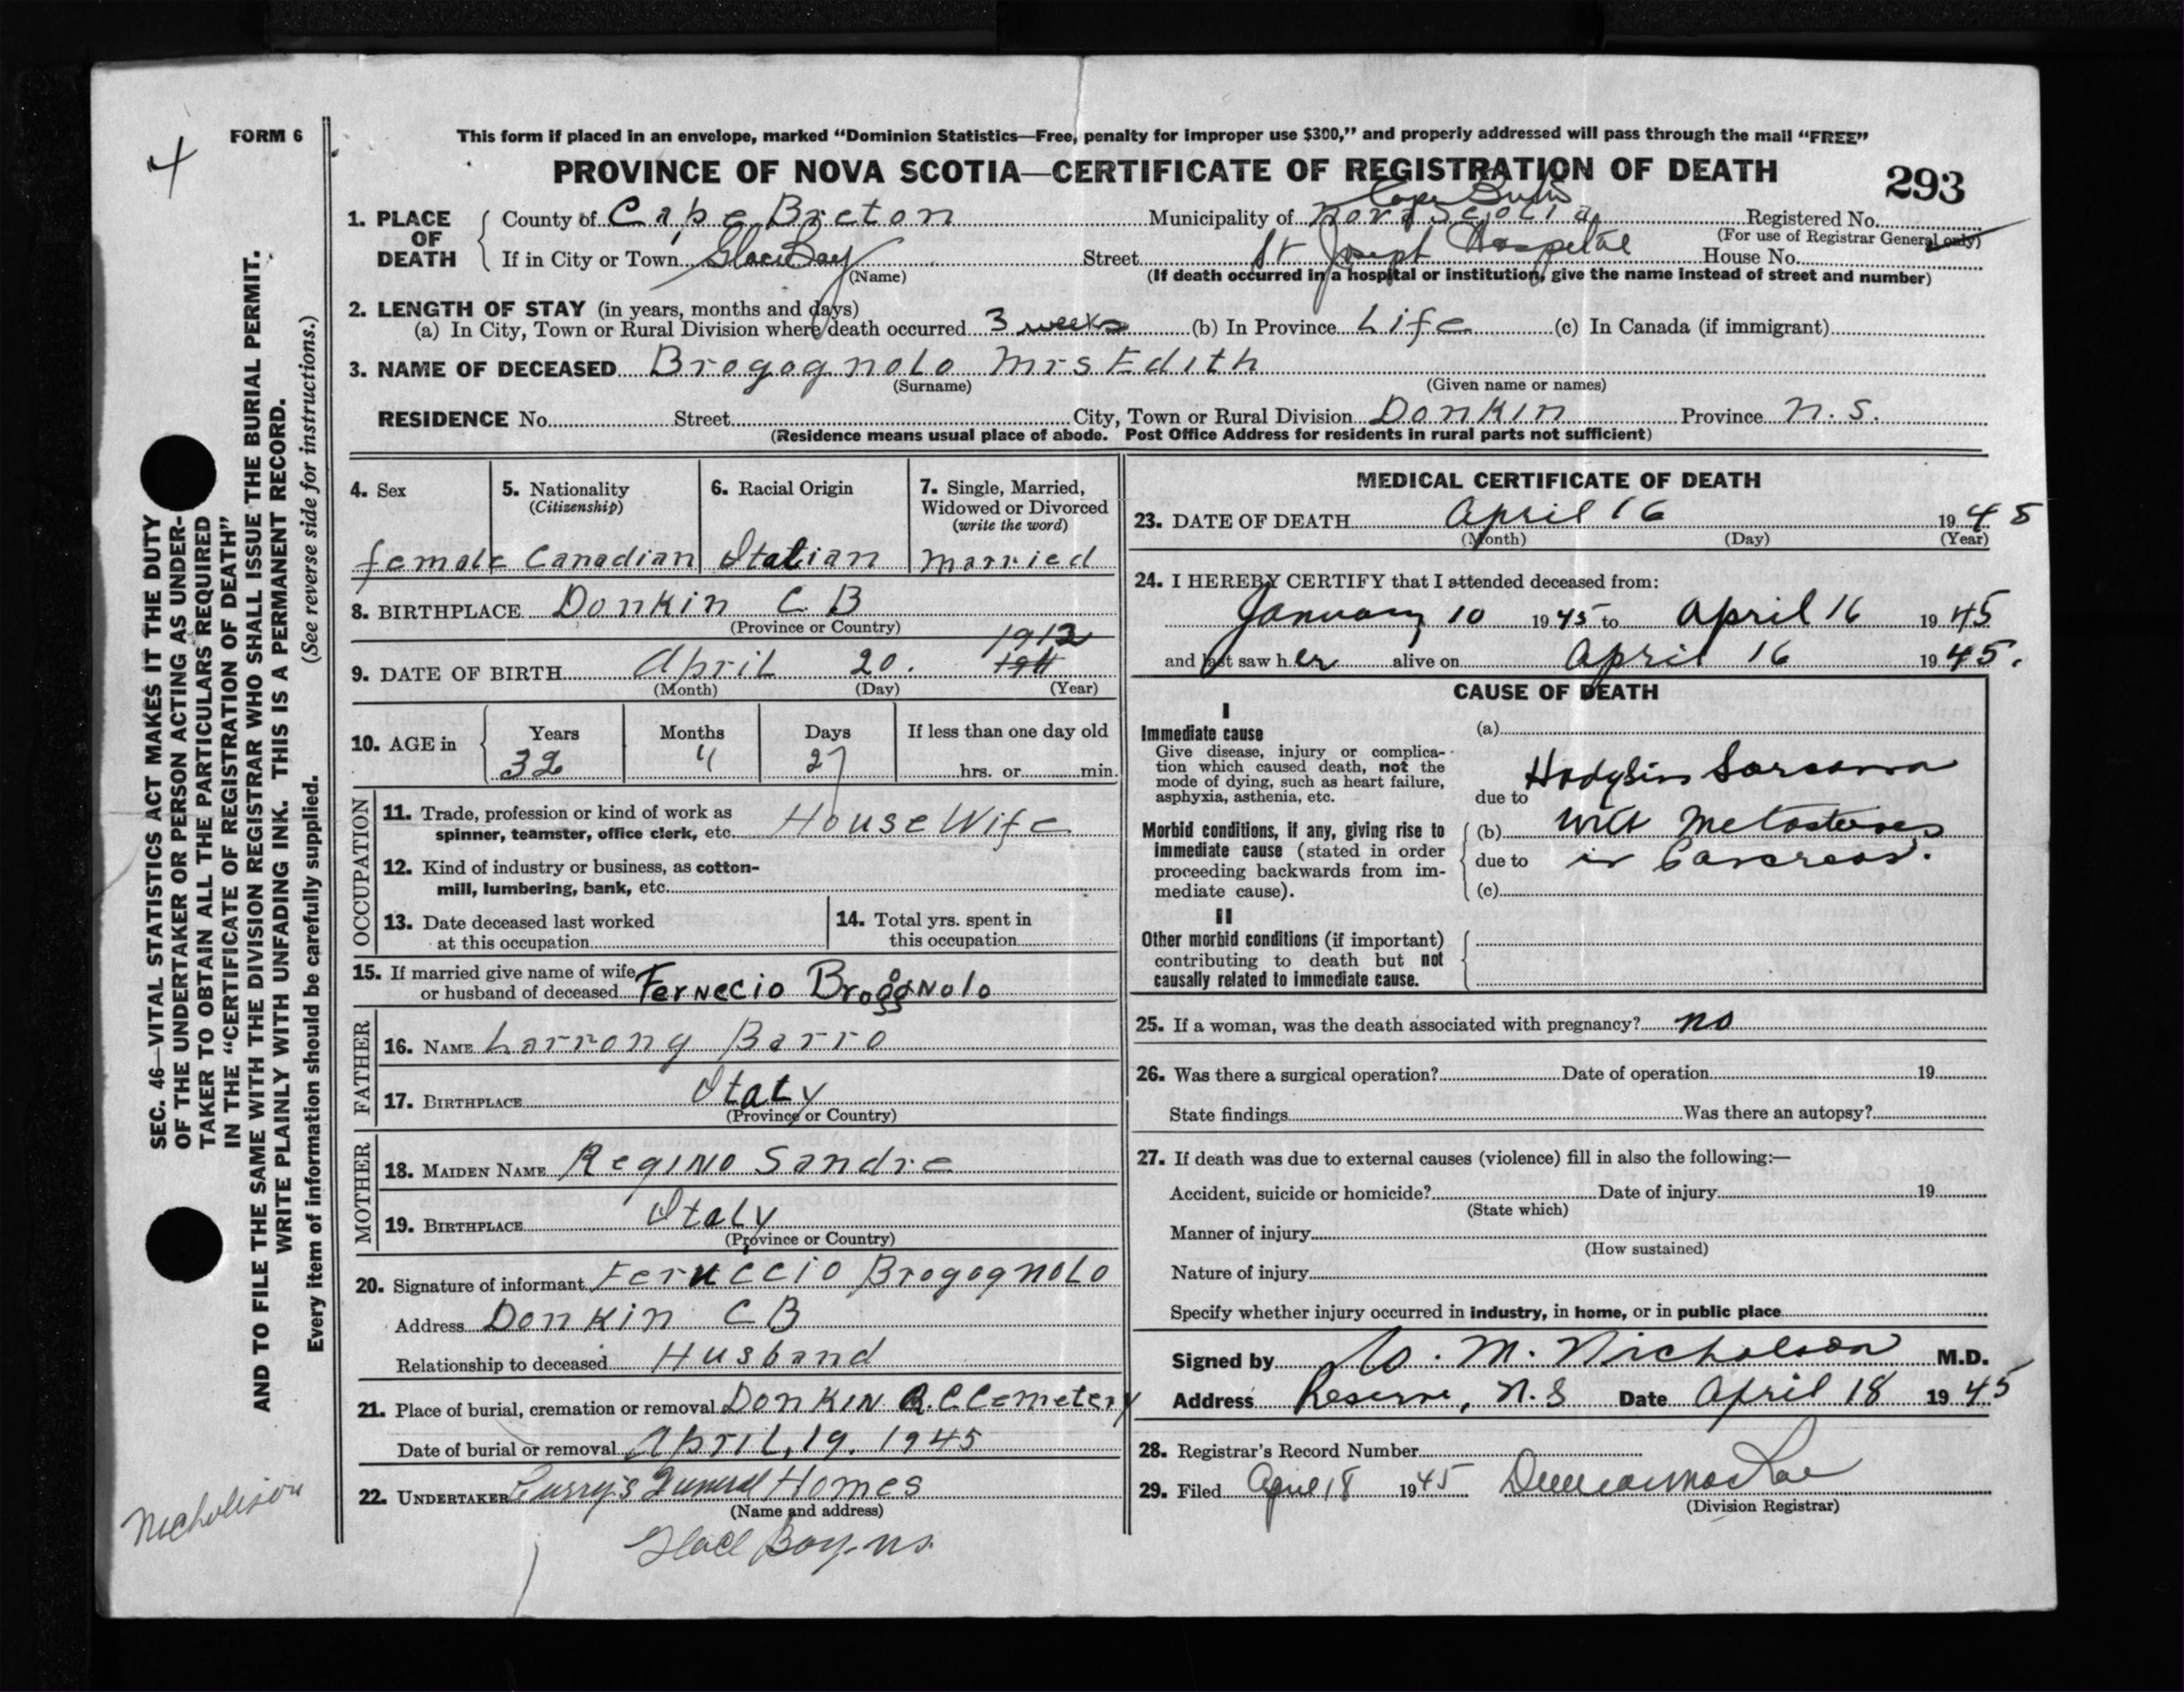 4
FORM 6
This form if placed in an envelope, marked “Dominion Statistics—Free, penalty for improper use $300,” and properly addressed will pass through the mail “FREE”
PROVINCE OF NOVA SCOTIA—CERTIFICATE OF REGISTRATION OF DEATH
293
1. PLACE OF DEATH
County of Cape Breton Municipality of Nova Scotia Cape Breton Registered No.
(For use of Registrar General only)
If in City or Town Glace Bay Street St Joseph Hospital House No.
(Name) (If death occurred in a hospital or institution, give the name instead of street and number)
2. LENGTH OF STAY (in years, months and days)
(a) In City, Town or Rural Division where death occurred 3 weeks (b) In Province Life (c) In Canada (if immigrant)
3. NAME OF DECEASED Brogognolo Mrs Edith
(Surname) (Given name or names)
RESIDENCE No. Street City, Town or Rural Division Donkin Province N.S.
(Residence means usual place of abode. Post Office Address for residents in rural parts not sufficient)
4. Sex
female
5. Nationality
(Citizenship)
Canadian
6. Racial Origin
Italian
7. Single, Married,
Widowed or Divorced
(write the word)
Married
8. BIRTHPLACE Donkin C B
(Province or Country)
1912
9. DATE OF BIRTH April 20. 1911
(Month) (Day) (Year)
10. AGE in
Years Months Days If less than one day old
32 4 27 hrs. or min.
OCCUPATION
11. Trade, profession or kind of work as
spinner, teamster, office clerk, etc. House Wife
12. Kind of industry or business, as cotton-
mill, lumbering, bank, etc.
13. Date deceased last worked
at this occupation
14. Total yrs. spent in
this occupation
15. If married give name of wife
or husband of deceased Fernecio Brogognolo
FATHER
16. NAME Larrong Barro
17. BIRTHPLACE Italy
(Province or Country)
MOTHER
18. MAIDEN NAME Regino Sandre
19. BIRTHPLACE Italy
(Province or Country)
20. Signature of informant Feruccio Brogognolo
Address Donkin C B
Relationship to deceased Husband
21. Place of burial, cremation or removal Donkin R.C Cemetery
Date of burial or removal April, 19. 1945
22. UNDERTAKER Curry's Funeral Homes
(Name and address)
Glace Bay. N.S.
MEDICAL CERTIFICATE OF DEATH
23. DATE OF DEATH April 16 1945
(Month) (Day) (Year)
24. I HEREBY CERTIFY that I attended deceased from:
January 10 1945 to April 16 1945
and last saw her alive on April 16 1945.
CAUSE OF DEATH
I
Immediate cause
Give disease, injury or complica-
tion which caused death, not the
mode of dying, such as heart failure,
asphyxia, asthenia, etc.
(a)
Hodgkins Sarcoma
due to
Morbid conditions, if any, giving rise to
immediate cause (stated in order
proceeding backwards from im-
mediate cause).
(b) with Metastases
due to in Pancreas.
(c)
II
Other morbid conditions (if important)
contributing to death but not
causally related to immediate cause.
25. If a woman, was the death associated with pregnancy? no
26. Was there a surgical operation? Date of operation 19
State findings Was there an autopsy?
27. If death was due to external causes (violence) fill in also the following:—
Accident, suicide or homicide? Date of injury 19
(State which)
Manner of injury
(How sustained)
Nature of injury
Specify whether injury occurred in industry, in home, or in public place
Signed by W. M. Nicholson M.D.
Address Reserve, N.S Date April 18 1945
28. Registrar's Record Number
29. Filed April 18 1945 Duncan MacRae
(Division Registrar)
SEC. 46—VITAL STATISTICS ACT MAKES IT THE DUTY
OF THE UNDERTAKER OR PERSON ACTING AS UNDER-
TAKER TO OBTAIN ALL THE PARTICULARS REQUIRED
IN THE “CERTIFICATE OF REGISTRATION OF DEATH”
AND TO FILE THE SAME WITH THE DIVISION REGISTRAR WHO SHALL ISSUE THE BURIAL PERMIT.
WRITE PLAINLY WITH UNFADING INK. THIS IS A PERMANENT RECORD.
Every item of information should be carefully supplied. (See reverse side for instructions.)
Nicholson